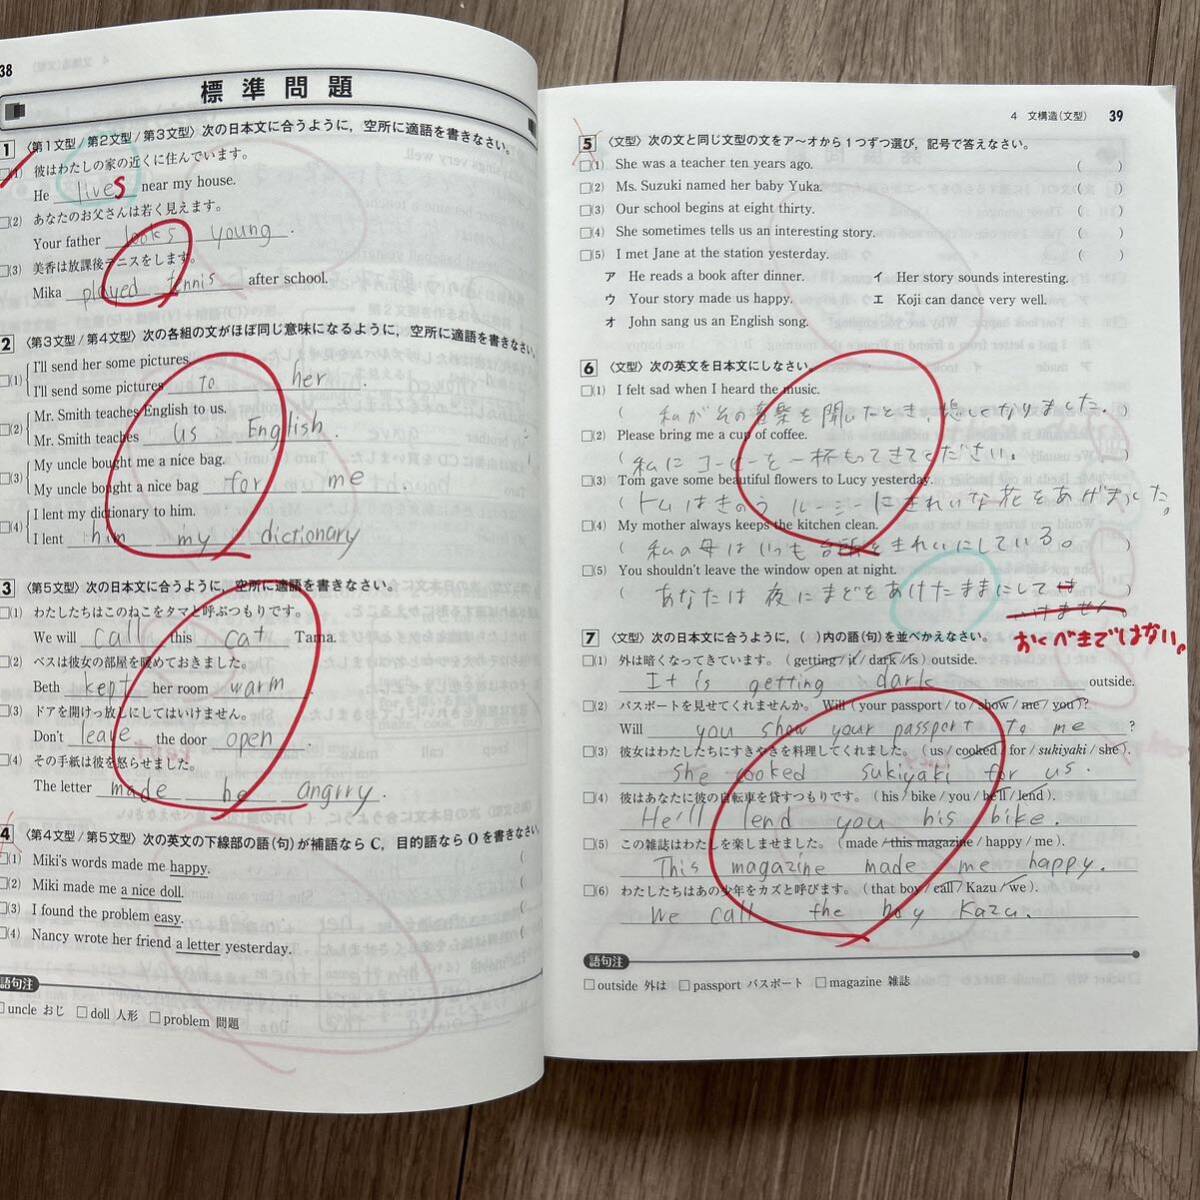 38
標準問題
1 〈第1文型/第2文型/第3文型〉次の日本文に合うように,空所に適語を書きなさい。
(1) 彼はわたしの家の近くに住んでいます。
He lives near my house.
(2) あなたのお父さんは若く見えます。
Your father looks young.
(3) 美香は放課後テニスをします。
Mika played tennis after school.
2 〈第3文型/第4文型〉次の各組の文がほぼ同じ意味になるように,空所に適語を書きなさい。
(1) I'll send her some pictures.
I'll send some pictures to her.
(2) Mr. Smith teaches English to us.
Mr. Smith teaches us English.
(3) My uncle bought me a nice bag.
My uncle bought a nice bag for me.
(4) I lent my dictionary to him.
I lent him my dictionary
3 〈第5文型〉次の日本文に合うように,空所に適語を書きなさい。
(1) わたしたちはこのねこをタマと呼ぶつもりです。
We will call this cat Tama.
(2) ベスは彼女の部屋を暖めておきました。
Beth kept her room warm.
(3) ドアを開けっ放しにしてはいけません。
Don't leave the door open.
(4) その手紙は彼を怒らせました。
The letter made he angrry.
4 〈第4文型/第5文型〉次の英文の下線部の語(句)が補語ならC,目的語ならOを書きなさい。
(1) Miki's words made me happy. (
(2) Miki made me a nice doll. (
(3) I found the problem easy. (
(4) Nancy wrote her friend a letter yesterday. (
語句注
uncle おじ □doll 人形 □problem 問題
4 文構造(文型) 39
5 〈文型〉次の文と同じ文型の文をア〜オから1つずつ選び,記号で答えなさい。
□(1) She was a teacher ten years ago. ( )
□(2) Ms. Suzuki named her baby Yuka. ( )
□(3) Our school begins at eight thirty. ( )
□(4) She sometimes tells us an interesting story. ( )
□(5) I met Jane at the station yesterday. ( )
ア He reads a book after dinner. イ Her story sounds interesting.
ウ Your story made us happy. エ Koji can dance very well.
オ John sang us an English song.
6 〈文型〉次の英文を日本文にしなさい。
□(1) I felt sad when I heard the music.
( 私がその音楽を聞いたとき、悲しくなりました。 )
□(2) Please bring me a cup of coffee.
( 私にコーヒーを一杯もってきてください。 )
□(3) Tom gave some beautiful flowers to Lucy yesterday.
( トムはきのうルーシーにきれいな花をあげました。
□(4) My mother always keeps the kitchen clean.
( 私の母はいつも台所をきれいにしている。 )
□(5) You shouldn't leave the window open at night.
( あなたは夜にまどをあけたままにしては )
いけません。
おくべきではない。
7 〈文型〉次の日本文に合うように,( )内の語(句)を並べかえなさい。
□(1) 外は暗くなってきています。(getting / it / dark / is) outside.
It is getting dark outside.
□(2) パスポートを見せてくれませんか。Will (your passport / to / show / me / you)?
Will you show your passport to me ?
□(3) 彼女はわたしたちにすきやきを料理してくれました。(us / cooked / for / sukiyaki / she).
She cooked sukiyaki for us.
□(4) 彼はあなたに彼の自転車を貸すつもりです。(his / bike / you / he'll / lend).
He'll lend you his bike.
□(5) この雑誌はわたしを楽しませました。(made / this magazine / happy / me).
This magazine made me happy.
□(6) わたしたちはあの少年をカズと呼びます。(that boy / call / Kazu / we).
We call the boy Kazu.
語句注
□outside 外は □passport パスポート □magazine 雑誌